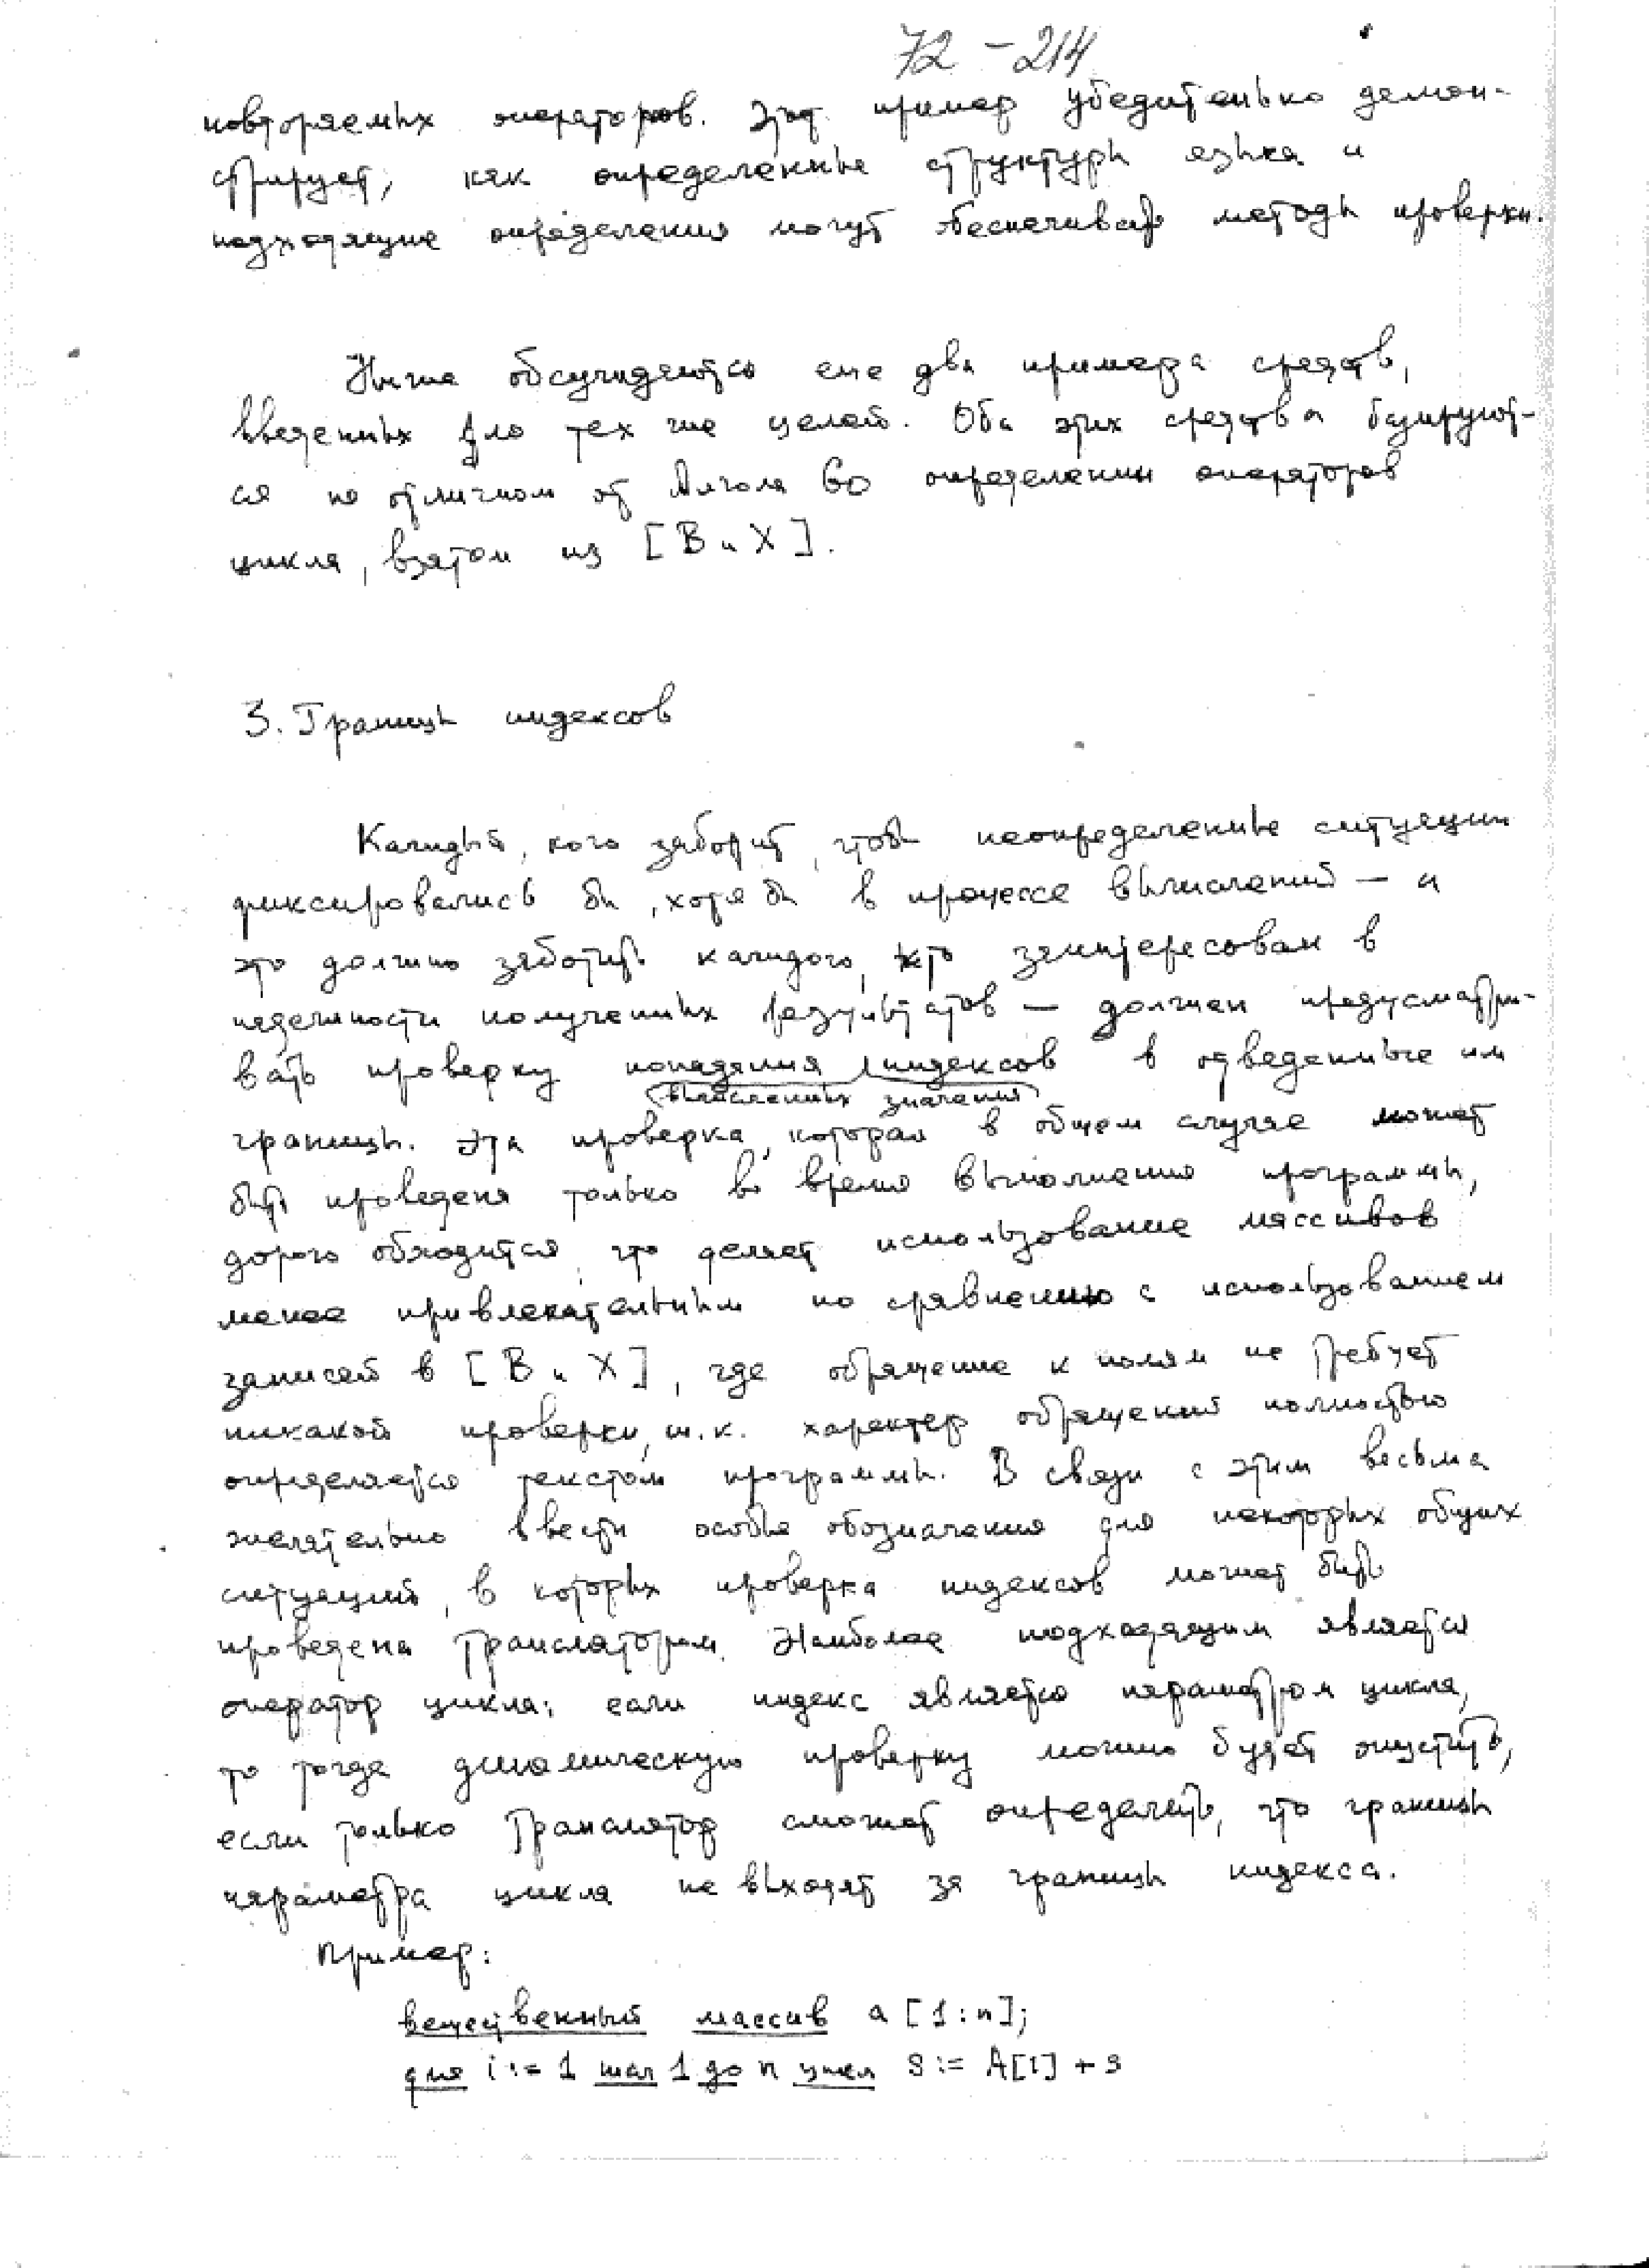 72 – 214
повторяемых операторов. Этот пример убедительно демон-
стрирует, как определенные структуры языка и
подходящие определения могут обеспечивать методы проверки.
Ниже обсуждаются еще два примера средств,
введенных для тех же целей. Оба этих средства базируют-
ся на отличном от Алгола 60 определении операторов
цикла, взятом из [В и Х].
3. Границы индексов
Каждый, кого заботит, чтобы неопределенные ситуации
фиксировались бы, хотя бы в процессе вычислений — а
это должно заботить каждого, кто заинтересован в
надежности полученных результатов — должен предусматри-
вать проверку попадания индексов в отведенные им
вычисленных значений
границы. Эта проверка, которая в общем случае может
быть проведена только во время выполнения программы,
дорого обходится, что делает использование массивов
менее привлекательным по сравнению с использованием
записей в [В и Х], где обращение к полям не требует
никакой проверки, т.к. характер обращений полностью
определяется текстом программы. В связи с этим весьма
желательно ввести особые обозначения для некоторых общих
ситуаций, в которых проверка индексов может быть
проведена транслятором. Наиболее подходящим является
оператор цикла: если индекс является параметром цикла,
то тогда динамическую проверку можно будет опустить,
если только транслятор сможет определить, что границы
параметра цикла не выходят за границы индекса.
Пример:
вещественный массив a [1:n];
для i := 1 шаг 1 до n цикл s := A[i] + s